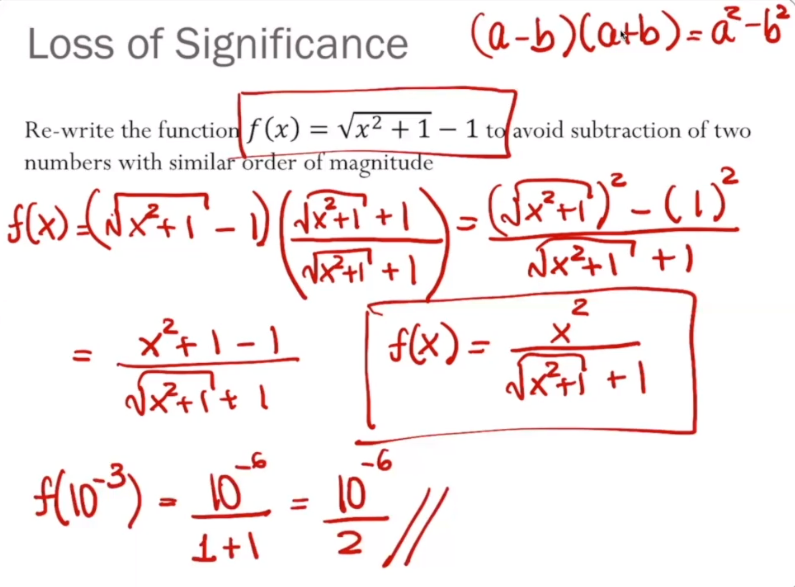 Loss of Significance
(a-b)(a+b) = a² - b²
Re-write the function f(x) = √(x² + 1) − 1 to avoid subtraction of two
numbers with similar order of magnitude
f(x) = (√(x²+1) - 1) ((√(x²+1) + 1)/(√(x²+1) + 1)) = ((√(x²+1))² - (1)²)/(√(x²+1) + 1)
= (x²+1-1)/(√(x²+1) + 1)
f(x) = x²/(√(x²+1) + 1)
f(10⁻³) = 10⁻⁶/(1+1) = 10⁻⁶/2 //